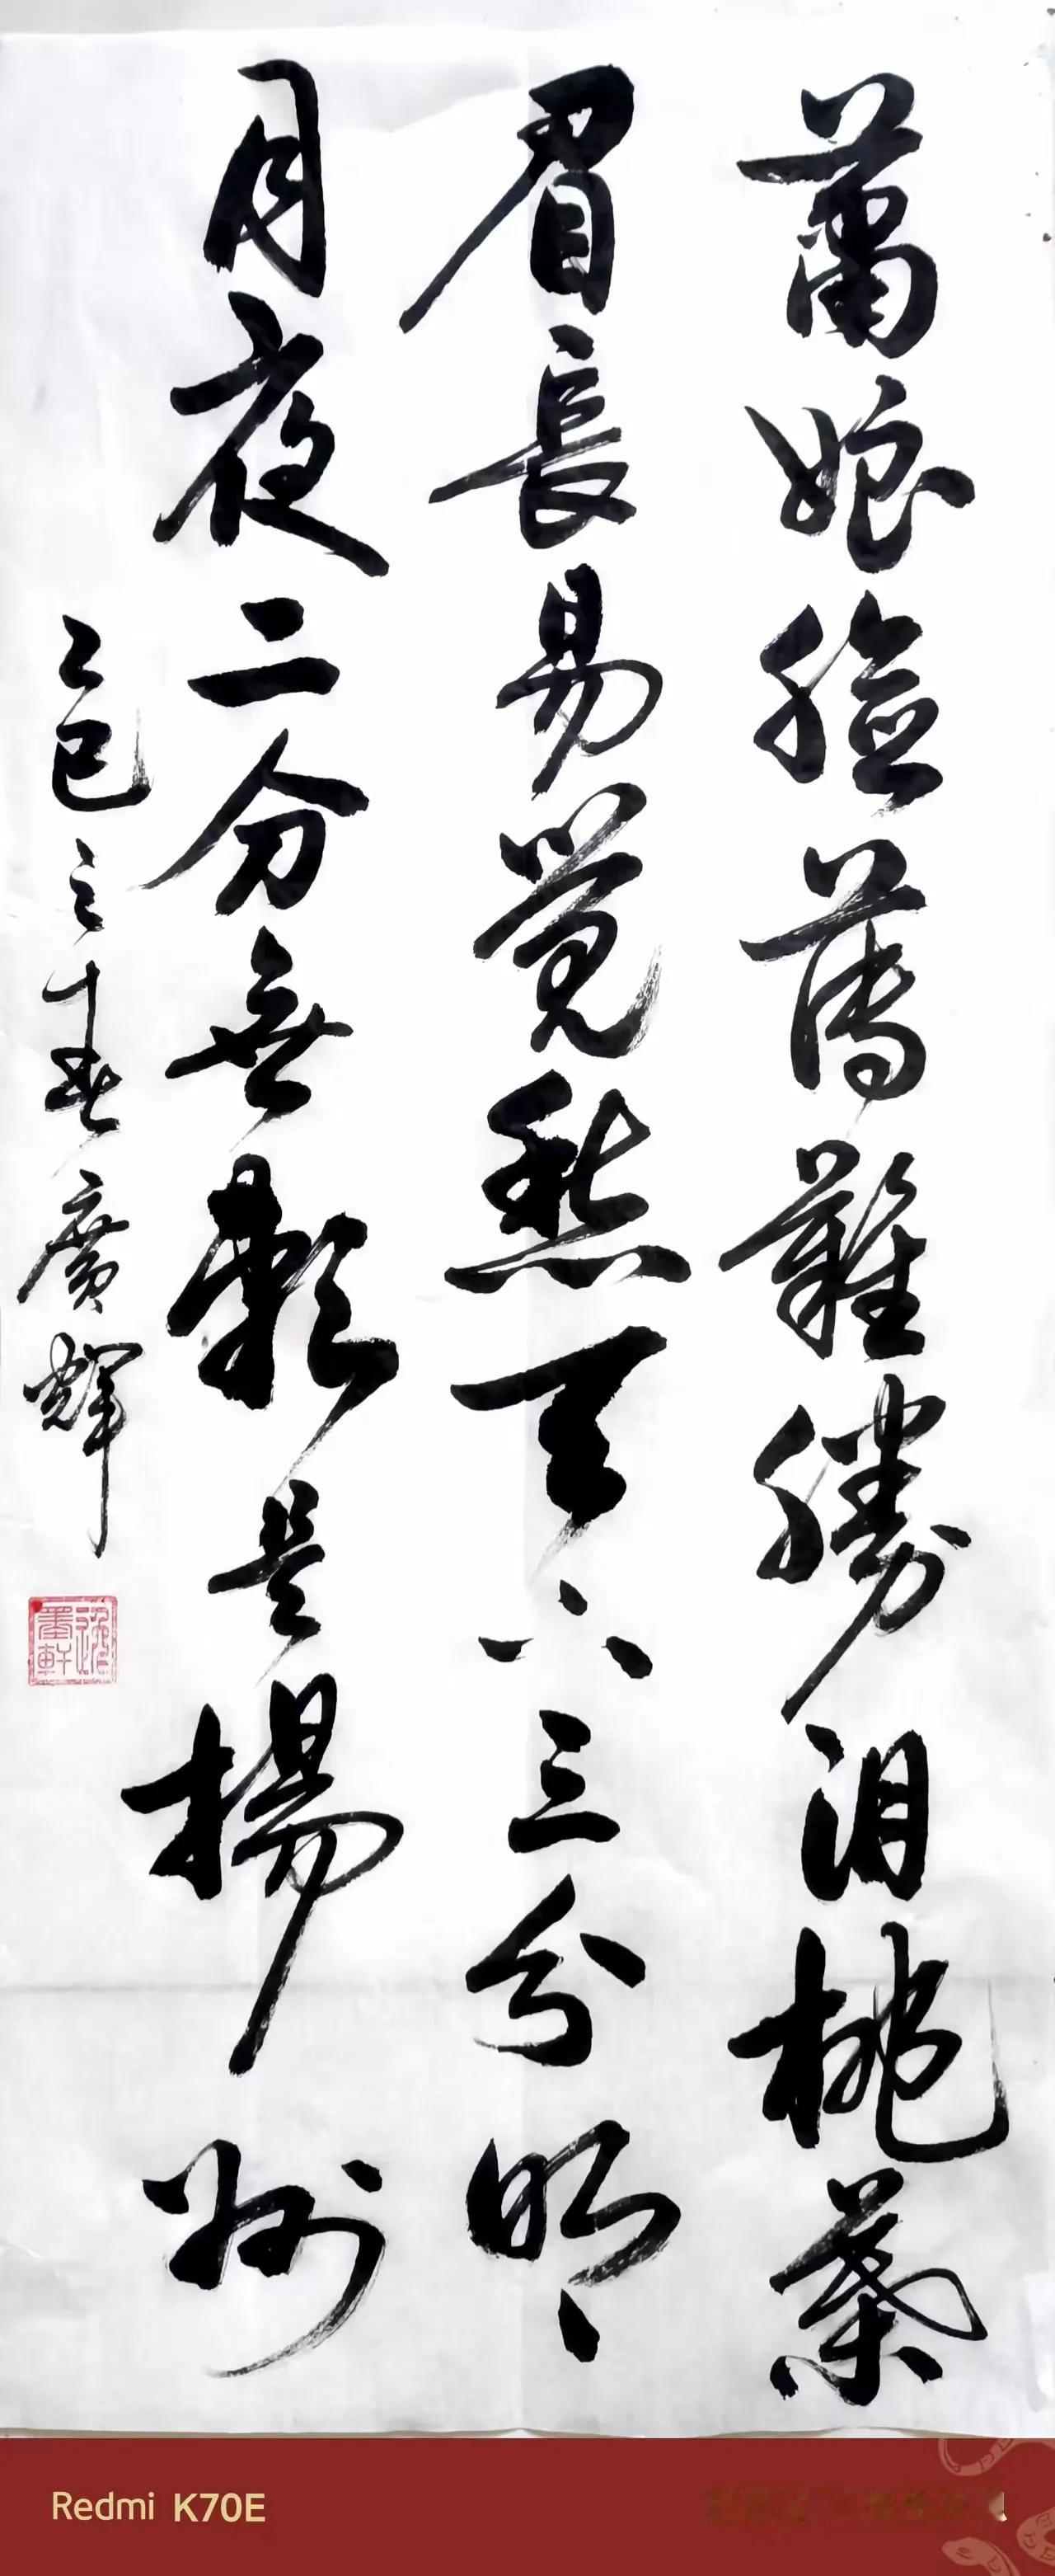 蕭娘臉薄難勝淚桃葉
眉長易覺愁天下三分明
月夜二分無賴是揚州
乙巳之春廣輝
Redmi K70E